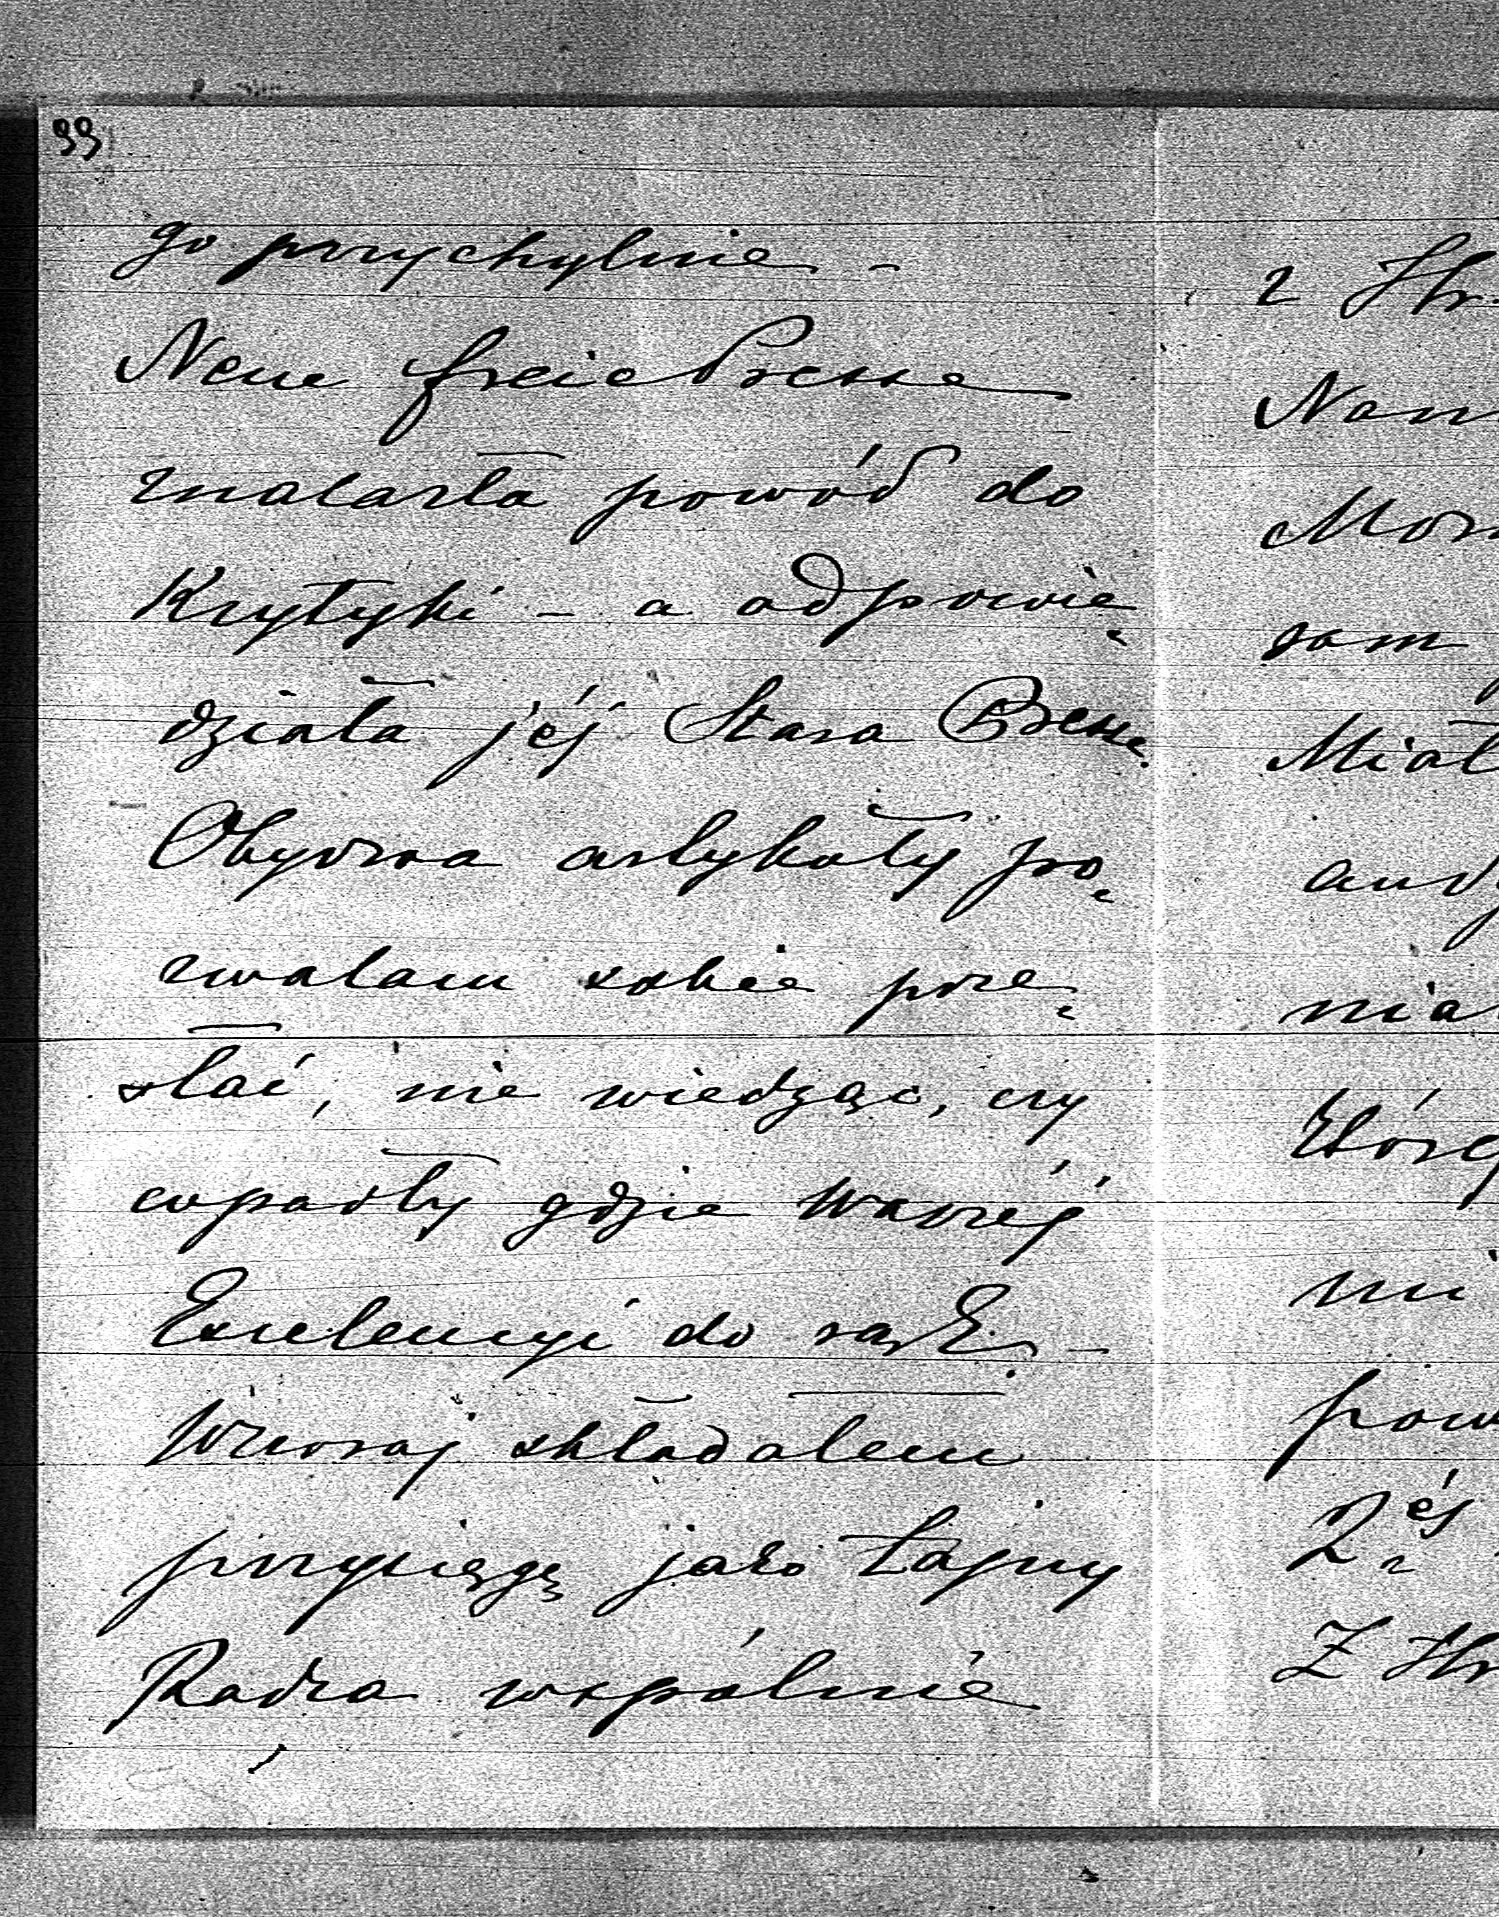 99
go przychylnie –
Neue freie Presse
znalazła powód do
Krytyki – a odpowie
działa jéj Stara Presse.
Obydwa artykuły po
zwalam sobie prze
słać, nie wiedząc, czy
wpadły gdzie Waszéj
Excelencyi do rąk. –
Wczoraj składałem
przysięgę jako tajny
Radca wspólnie
z Hr.
Nam
sam
Miał
nia
którą
mi
pow
Z Hr